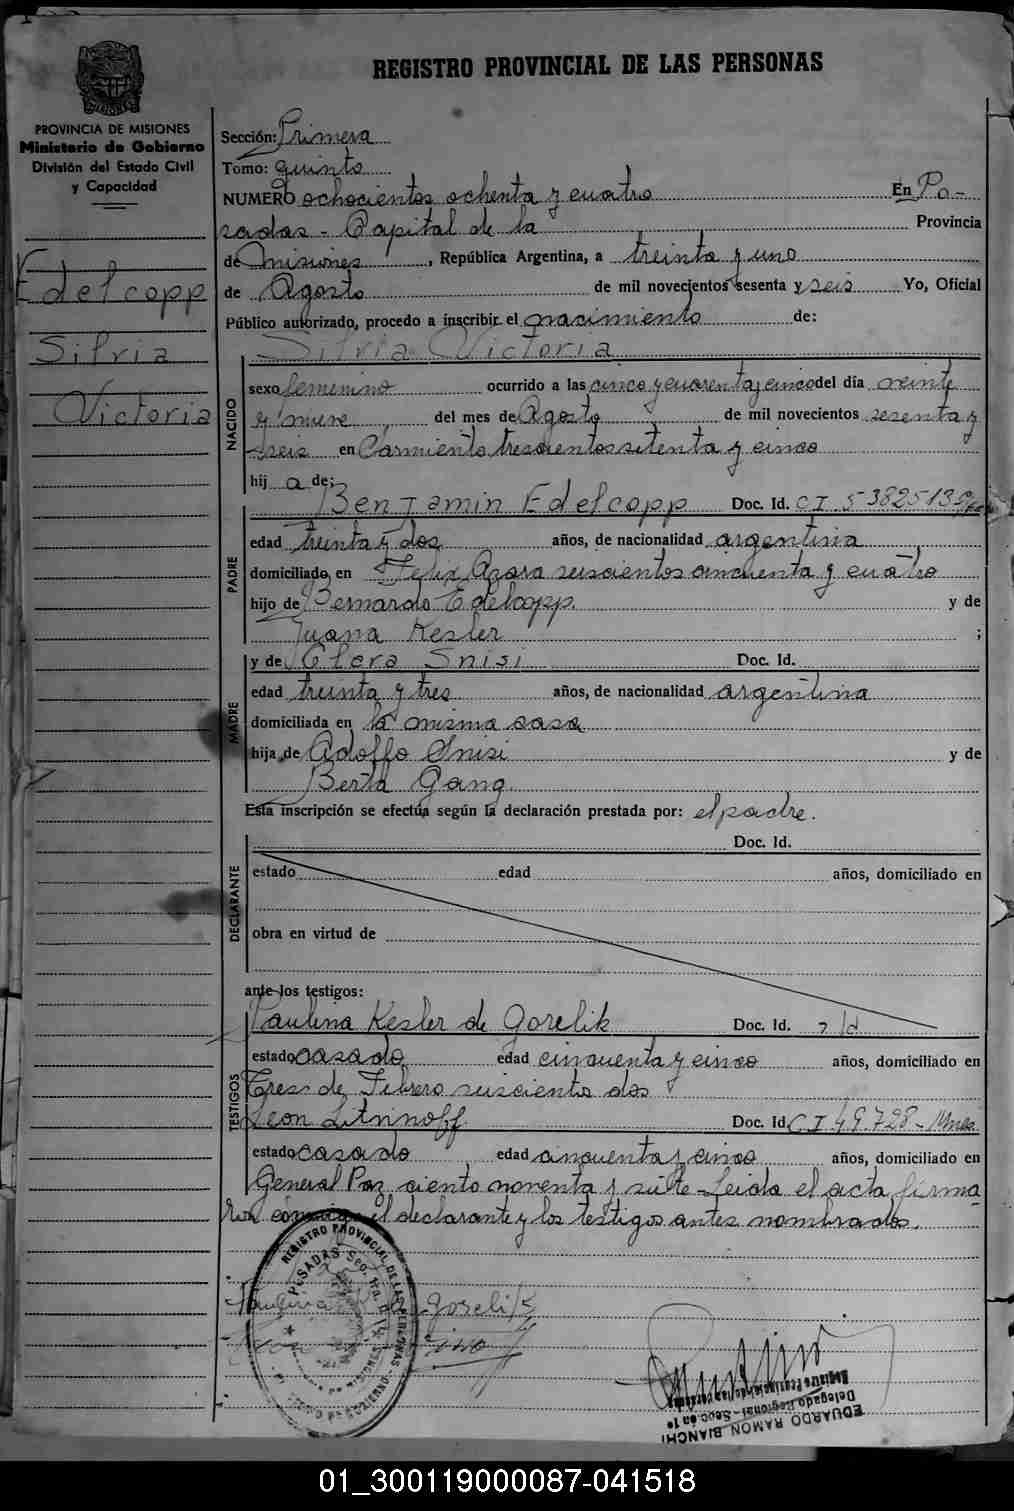 REGISTRO PROVINCIAL DE LAS PERSONAS
PROVINCIA DE MISIONES
Ministerio de Gobierno
División del Estado Civil
y Capacidad
Edelcopp
Silvia
Victoria
Sección: Primera
Tomo: quinto
NUMERO ochocientos ochenta y cuatro En Po-
sadas - Capital de la Provincia
de Misiones, República Argentina, a treinta y uno
de Agosto de mil novecientos sesenta y seis Yo, Oficial
Público autorizado, procedo a inscribir el nacimiento de:
Silvia Victoria
NACIDO
sexo femenino ocurrido a las cinco y cuarenta y cinco del día veinte
y nueve del mes de Agosto de mil novecientos sesenta y
seis en Sarmiento trescientos setenta y cinco
hij a de:
PADRE
Benjamin Edelcopp Doc. Id. C I 5382513
edad treinta y dos años, de nacionalidad argentina
domiciliado en Felix Azara seiscientos cincuenta y cuatro
hijo de Bernardo Edelcopp. y de
Juana Kesler ;
MADRE
y de Clara Snisi Doc. Id.
edad treinta y tres años, de nacionalidad argentina
domiciliada en la misma casa
hija de Adolfo Snisi y de
Berta Gang.
Esta inscripción se efectúa según la declaración prestada por: el padre.
DECLARANTE
Doc. Id.
estado edad años, domiciliado en
obra en virtud de
ante los testigos:
TESTIGOS
Paulina Kesler de Gorelik Doc. Id.
estado casado edad cincuenta y cinco años, domiciliado en
Tres de Febrero seiscientos dos
Leon Litvinoff Doc. Id. C I 49.728 - Mnes.
estado casado edad cincuenta y cinco años, domiciliado en
General Paz ciento noventa y siete - Leida el acta firma
ron conmigo el declarante y los testigos antes nombrados.
REGISTRO PROVINCIAL DE LAS PERSONAS
POSADAS Sec. 1ra.
Gorelik
EDUARDO RAMON BIANCHI
Delegado Regional - Secc. en 1º
Registro Provincial de las Personas
01_300119000087-041518